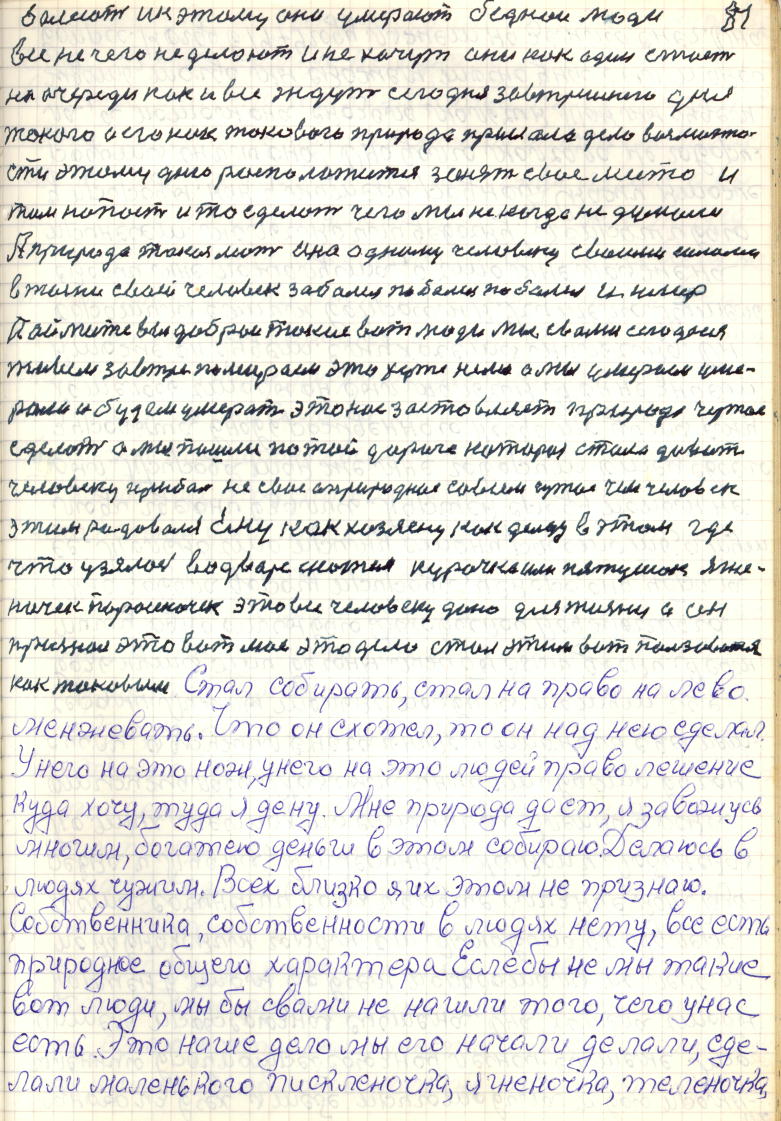 болеют их этому они умерают бедной люди 81
все не чего не делоют и не хочут они как один стоят
на очереди как и все ждут сегодня завтришнего дня
такого а его как токового природа прислала дело возможно-
сти этому дню росположится занят свое место и
там напост и то сделот чего мы не когда не думали
А природа такоя мот она одному человеку своими силами
в жизни свой человек заболел поболел поболел и умер
Паймите вы доброи токие вот люди мы свами сегодня
живем завтра помираем это хуже нема а мы умераем уме-
рали и будем умерат это нас заставляет природа чужое
сделот а мы пошли по той дороге которая стала довот
человеку прибал не свое априродное совсем чужое чем человек
этим радовался Ему как хозяену как делу в этом где
что узялос водворе скотея курочка или петушок ягне-
ночек поросеночек это все человеку дано для жизни а он
признал это вот мое это дело стал этим вот ползоватся
как таковым Стал собирать, стал на право на лево.
менжевать. Что он схотел, то он над нею сделал.
У него на это нож, унего на это людей право лешение
куда хочу, туда я дену. Мне природа даст, я завожусь
многим, богатею деньги в этом собираю. Делаюсь в
людях чужим. Всех близко я их этом не признаю.
Собственника, собственности в людях нету, все есть
природное общего характера Еслебы не мы такие
вот люди, мы бы свами не нашли того, чего унас
есть. Это наше дело мы его начали делали, сде-
лали маленького пискленочка, ягненочка, теленочка,